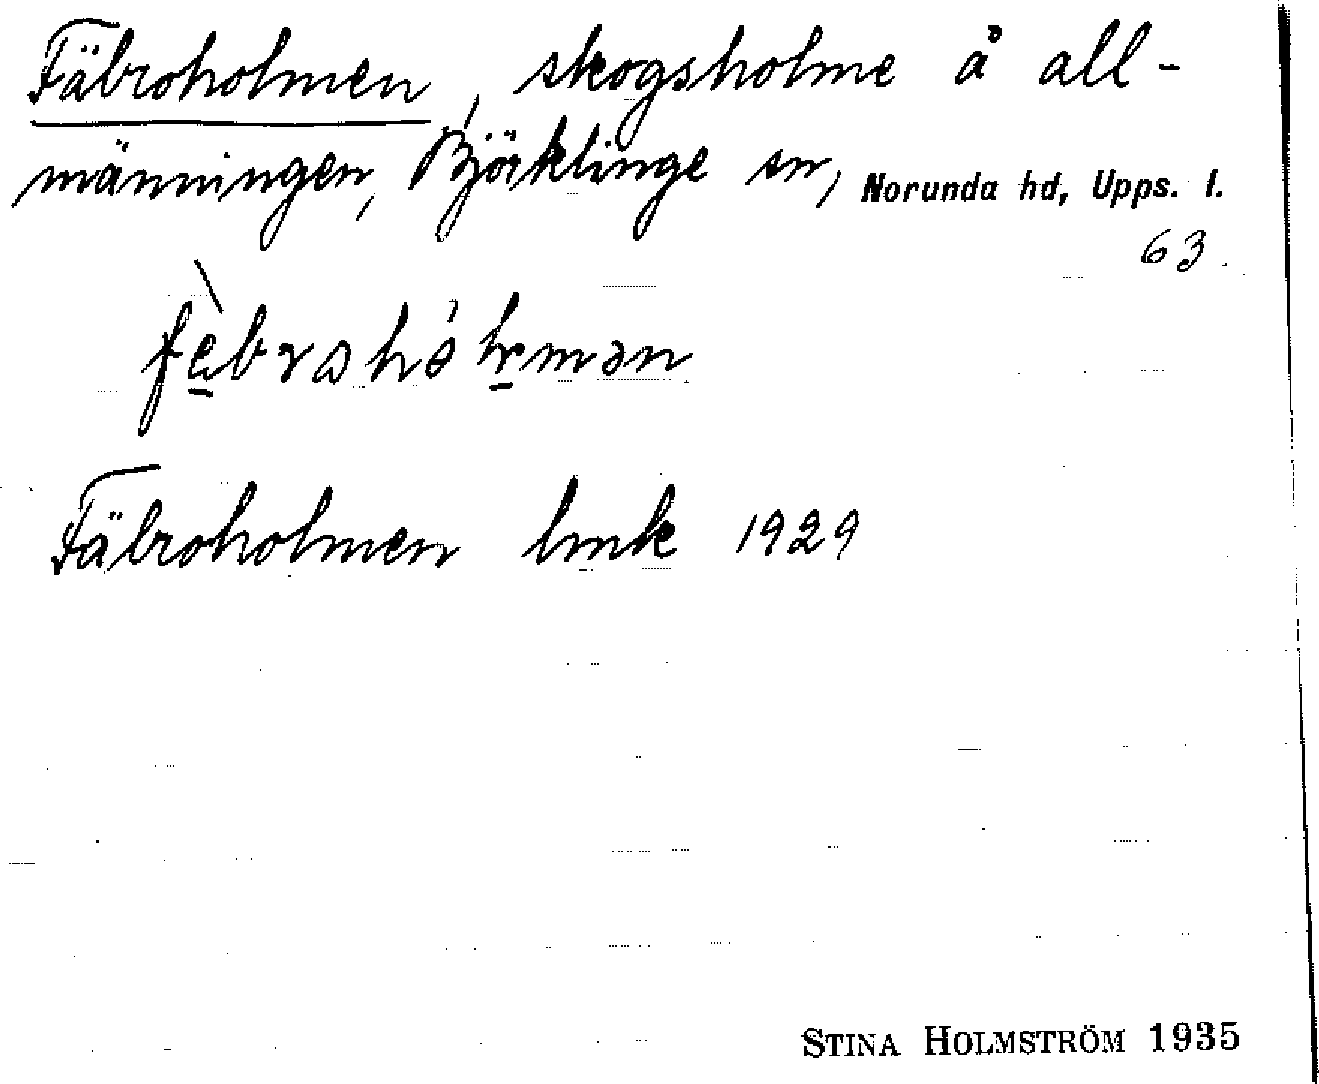 Fäbroholmen, skogsholme å all-
männingen, Björklinge sn, Norunda hd, Upps. l.
63.
Fäbroholmen lmk 1929
STINA HOLMSTRÖM 1935